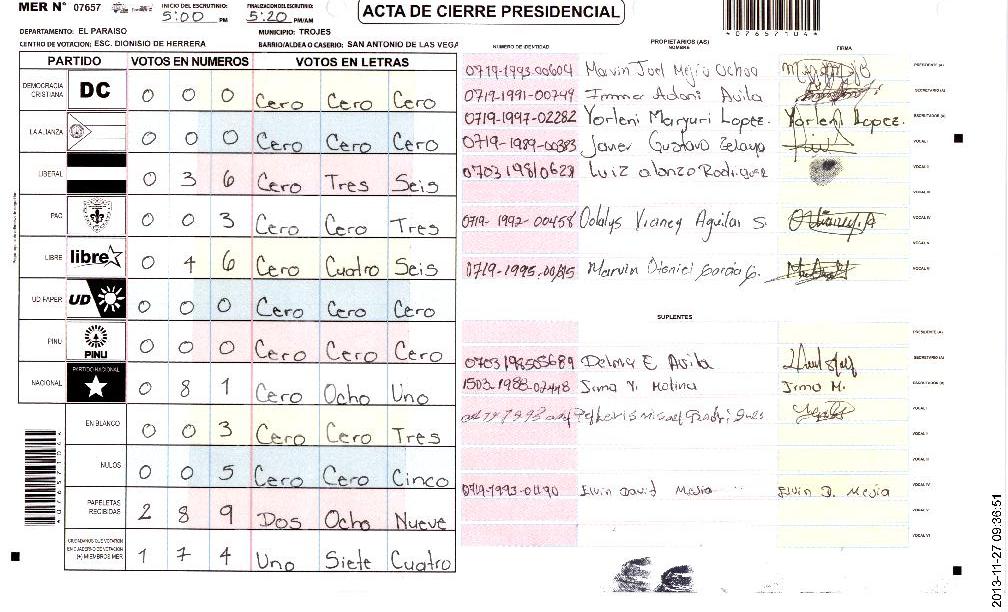 MER N° 07657
INICIO DEL ESCRUTINIO:
5:00 PM
FINALIZACION DEL ESCRUTINIO:
5:20 PM/AM
ACTA DE CIERRE PRESIDENCIAL
DEPARTAMENTO: EL PARAISO
MUNICIPIO: TROJES
CENTRO DE VOTACION: ESC. DIONISIO DE HERRERA
BARRIO/ALDEA O CASERIO: SAN ANTONIO DE LAS VEGA
4076571044
PARTIDO VOTOS EN NUMEROS VOTOS EN LETRAS
DEMOCRACIA CRISTIANA DC 0 0 0 Cero Cero Cero
LA ALIANZA 0 0 0 Cero Cero Cero
LIBERAL 0 3 6 Cero Tres Seis
PAC 0 0 3 Cero Cero Tres
LIBRE libre 0 4 6 Cero Cuatro Seis
UD FAPER UD 0 0 0 Cero Cero Cero
PINU PINU 0 0 0 Cero Cero Cero
NACIONAL PARTIDO NACIONAL 0 8 1 Cero Ocho Uno
EN BLANCO 0 0 3 Cero Cero Tres
NULOS 0 0 5 Cero Cero Cinco
PAPELETAS RECIBIDAS 2 8 9 Dos Ocho Nueve
CIUDADANOS QUE VOTARON EN CUADERNO DE VOTACION (+) MIEMBROS MER 1 7 4 Uno Siete Cuatro
4076571044
NUMERO DE IDENTIDAD PROPIETARIOS (AS) NOMBRE FIRMA
0719-1993-00604 Marvin Joel Mejia Ochoa PRESIDENTE (A)
0719-1991-00749 Adoni Avila SECRETARIO (A)
0719-1997-02282 Yorleni Maryuri Lopez. Yorleni Lopez. ESCRUTADOR (A)
0719-1989-00383 Javier Gustavo Zelaya VOCAL I
0703 1981 0628 Luiz alonzo Rodriguez VOCAL II
VOCAL III
0719-1992-00458 Odalys Vianey Aguilar S. VOCAL IV
VOCAL V
0719-1995-00 Marvin Garcia G. VOCAL VI
SUPLENTES
PRESIDENTE (A)
0703198505689 Delma E Avila SECRETARIO (A)
1503-1988-02448 Irma Y. Molina Irma M. ESCRUTADOR (A)
VOCAL I
VOCAL II
VOCAL III
0719-1993-01190 Elvin David Mejia Elvin D. Mejia VOCAL IV
VOCAL V
VOCAL VI
2013-11-27 09:36:51